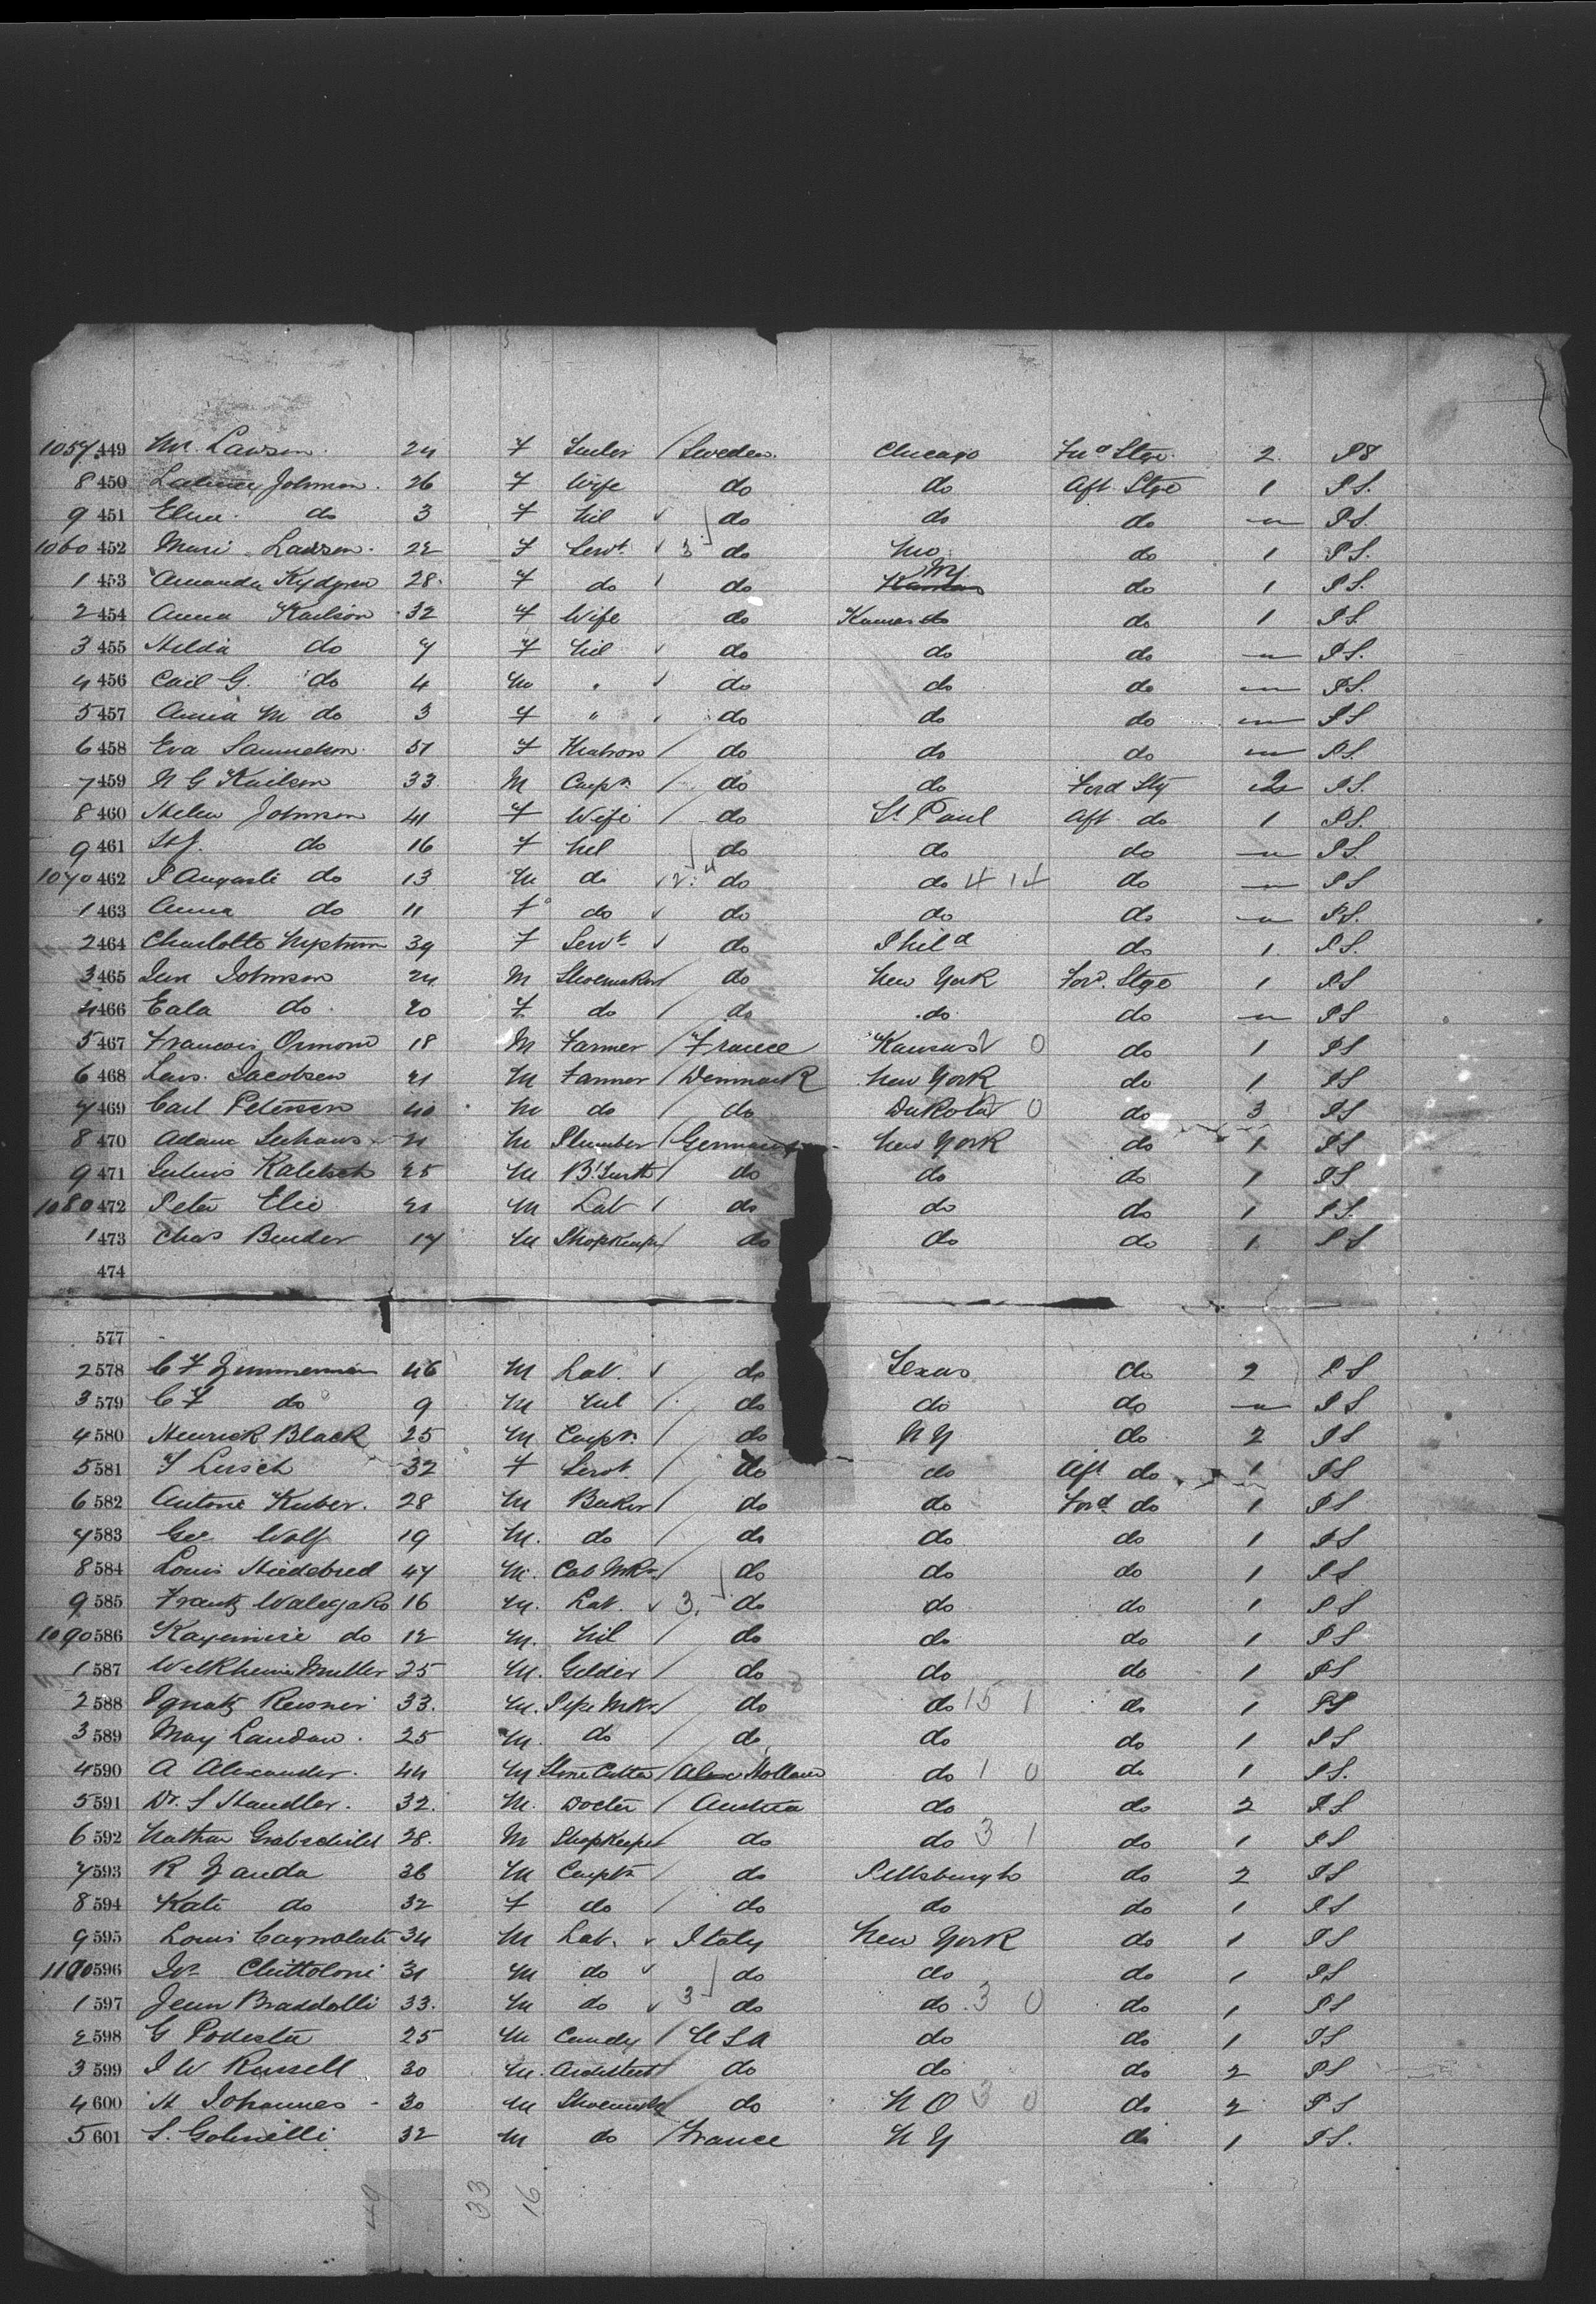 1057 449 Mr. Lawson 24 F Sailer / Sweden Chicago Fwd Stge 2 PS
8 450 Johnson 26 F Wife do do Aft Stge 1 PS.
9 451 Elna do 3 F do do do PS.
1060 452 Mari Lawson 22 F Servt 3 do Mo do 1 PS.
1 453 Amanda Kydgren 28 F do do NY do 1 PS.
2 454 Anna Karlson 32 F Wife do Kansas do 1 PS
3 455 Hilda do 7 F do do do PS.
4 456 Carl G. do 4 M " do do do PS.
5 457 Anna M do 3 F " do do do PS
6 458 Eva Samuelson 51 F Matron / do do do PS.
7 459 N G Karlson 33 M Carpr / do do Ford Stg 2 PS.
8 460 Helen Johnson 41 F Wife / do St Paul Aft do 1 PS.
9 461 do 16 F do do do PS.
1070 462 P August do 13 M do do do 4 14 do PS
1 463 Anna do 11 F do do do do PS.
2 464 Charlotte Nystrom 39 F Servt do Phila do 1 PS.
3 465 Johnson 24 M Shoemaker / do New York Ford Stge 1 PS
4 466 do 20 F do / do do do PS
5 467 Francois Ormond 18 M Farmer / France Kansas 1 0 do 1 PS
6 468 Lars Jacobsen 21 M Farmer / Denmark New York do 1 PS
7 469 Carl Petersen 40 M do / do Dakota 0 do 3 PS
8 470 Adam 21 M Plumber / Germany New York do 1 PS
9 471 Julius Kaletsch 25 M Bl Smith / do do do 1 PS
1080 472 Peter Elie 21 M Lab / do do do 1 PS.
1 473 Chas Bender 17 M Shopkeeper / do do do 1 PS
474
577
2 578 C F Zimmerman 46 M Lab. do Texas do 2 PS
3 579 C F do 9 M / do do do PS.
4 580 Henrick Black 25 M Carpr / do NY do 2 PS
5 581 F Lusch 32 F Servt / do do Aft do 1 PS
6 582 Antone Kuber. 28 M Baker / do do Ford do 1 PS
7 583 Geo Wolf 19 M. do / do do do 1 PS
8 584 Louis Hiedebred 47 M. Cab Mkr / do do do 1 PS
9 585 Frantz Walegako 16 M. Lab. 3. do do do 1 PS
1090 586 do 12 M. / do do do 1 PS
1 587 Muller 25 M. Gilder / do do do 1 PS
2 588 Ignatz Reisner 33. M. Pipe Mkr / do do 15 1 do 1 PS
3 589 Max Landau. 25 M. do / do do do 1 PS
4 590 A Alexander. 44 M Stone Cutter / Holland do 1 0 do 1 PS.
5 591 Dr. S Handler. 32. M. Doctor / Austria do do 2 PS
6 592 Nathan Grabschild 28. M Shopkeeper do do 3 1 do 1 PS
7 593 R Zanda 36 M Carptr / do Pittsburgh do 2 PS
8 594 Kate do 32 F do / do do do 1 PS
9 595 Louis 34 M Lab. Italy New York do 1 PS
1100 596 Chittoloni 31 M do do do do 1 PS
1 597 Jean Braddolli 33. M do 3 do do 3 0 do 1 PS
2 598 G Podesta 25 M Candy / USA do do 1 PS
3 599 J W Russell 30 M. Architect / do do do 2 PS
4 600 H Johannes 30 M Shoemaker do N O 3 0 do 2 PS
5 601 S. Golinelli 32 M do / France N Y do 1 PS.
49 33 16